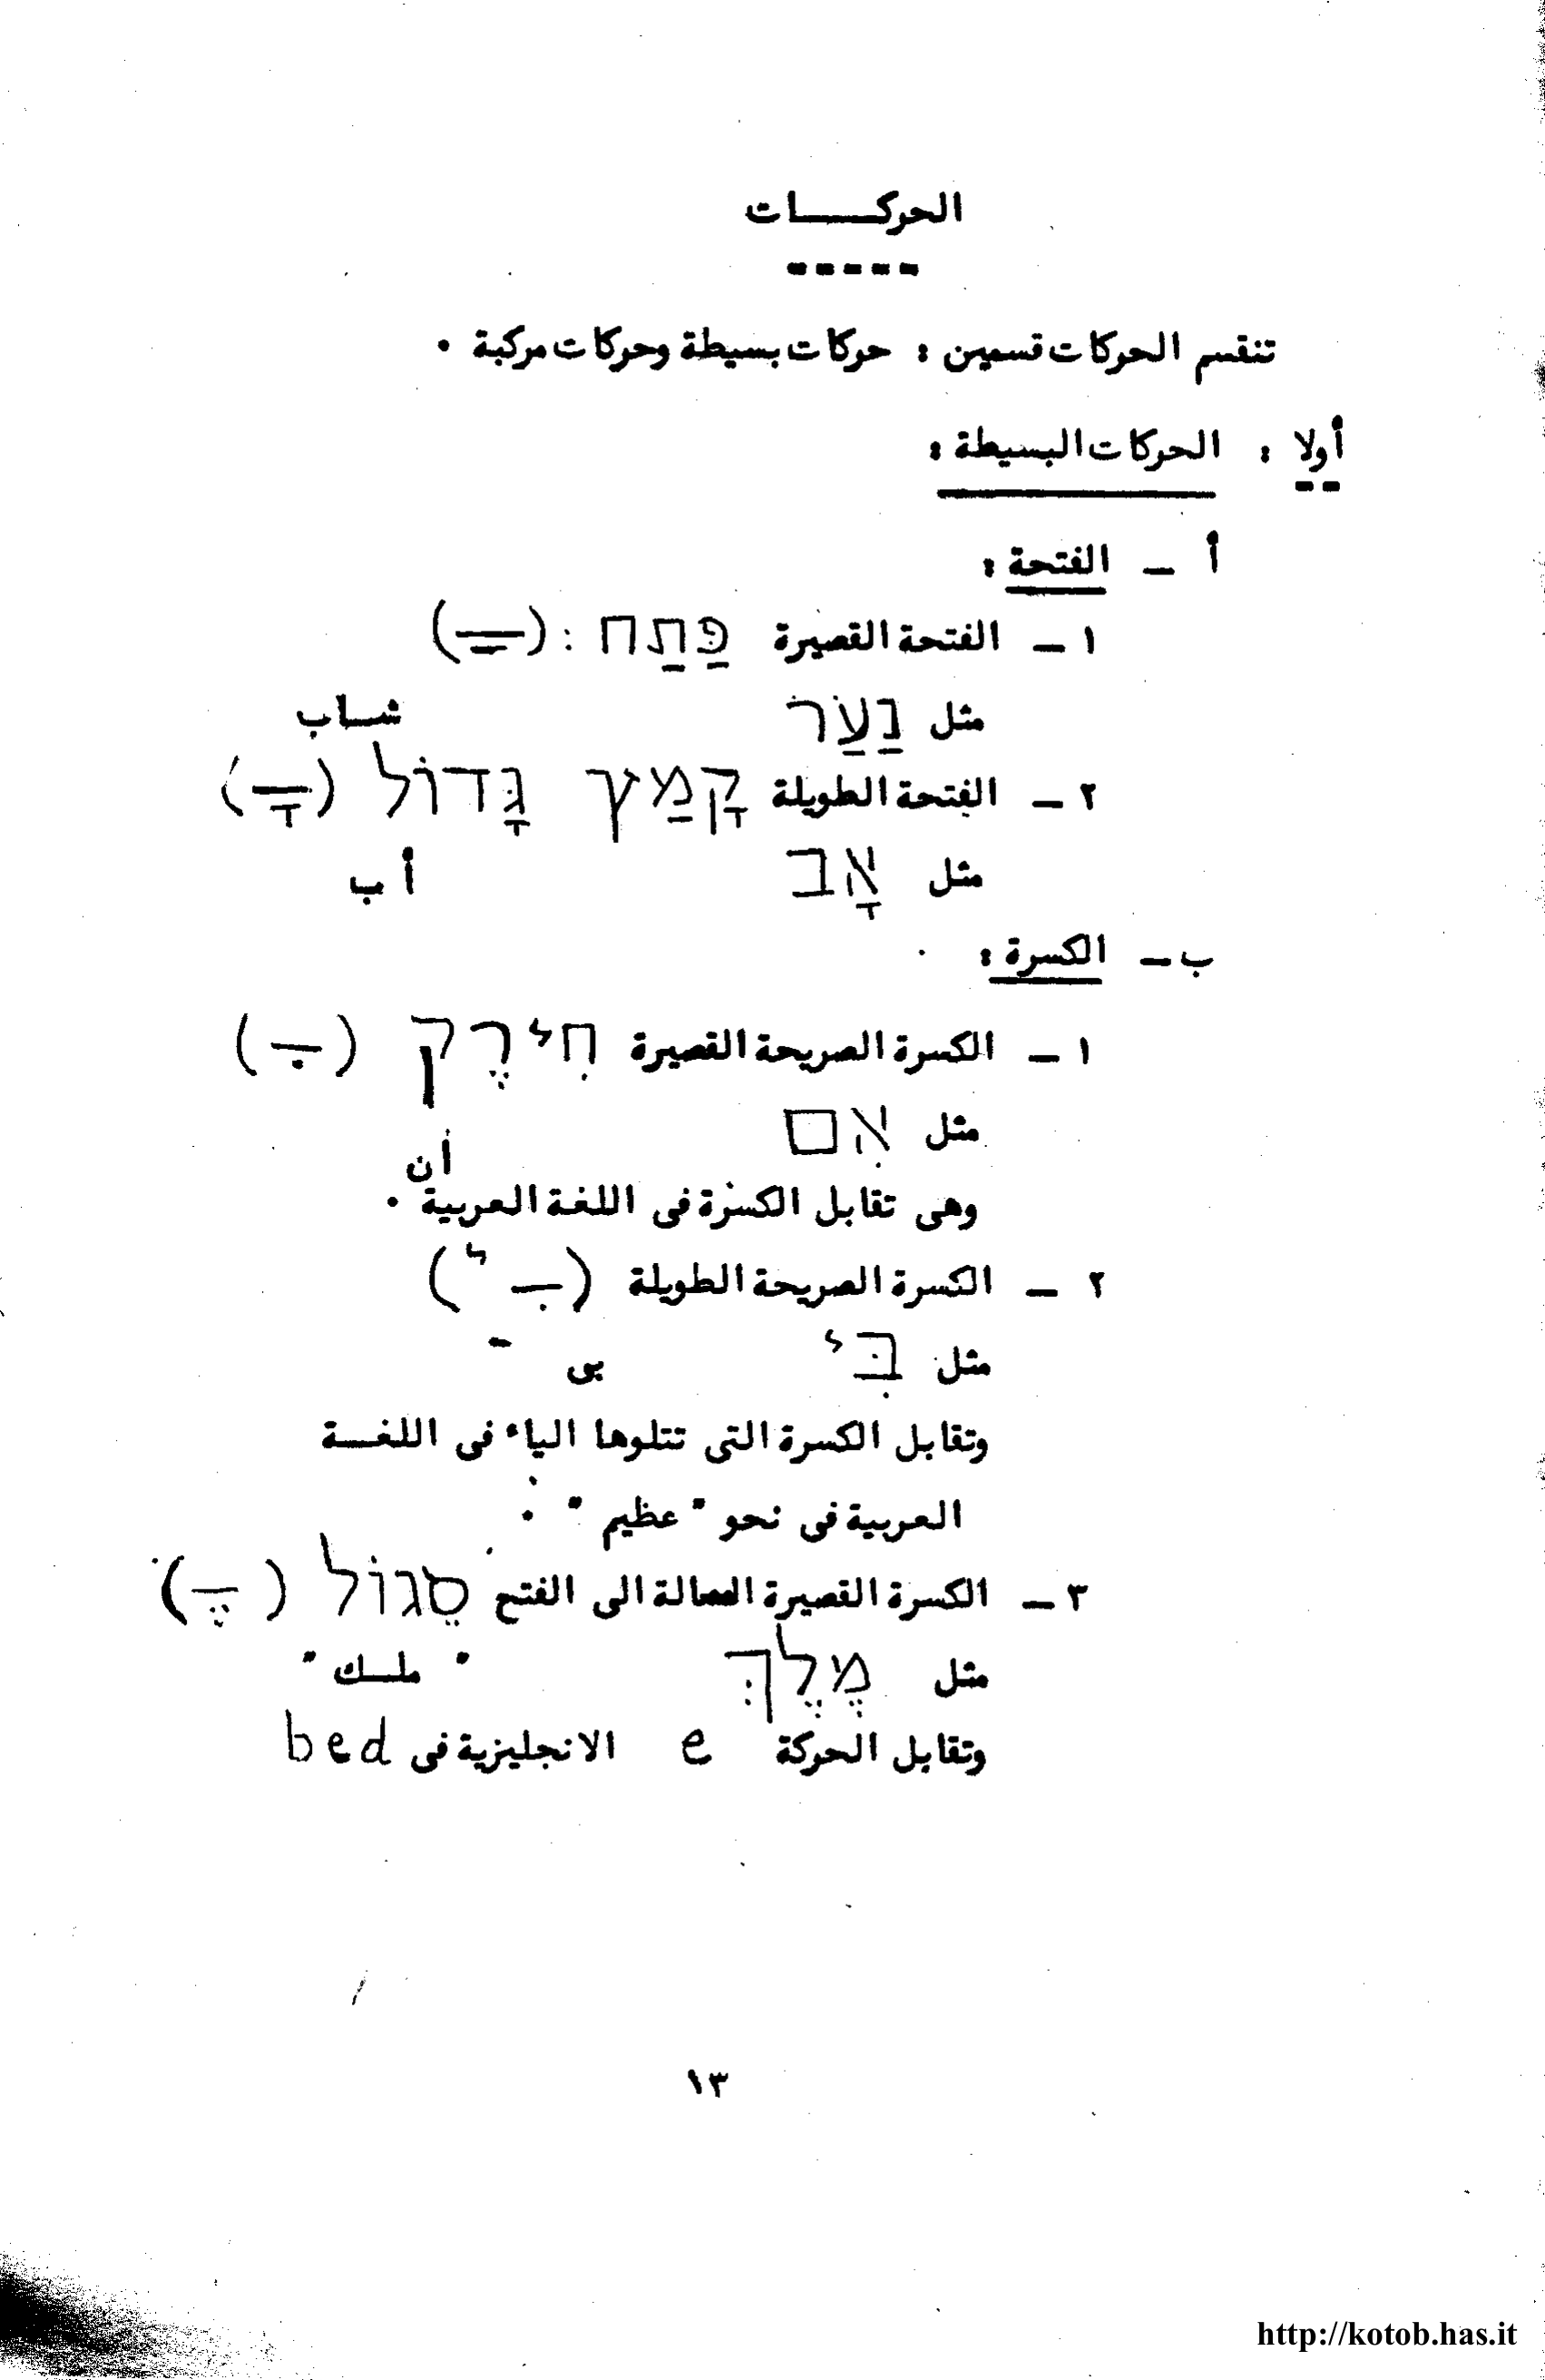 الحركـــات
تنقسم الحركات قسمين : حركات بسيطة وحركات مركبة .
أولا : الحركات البسيطة :
أ ـ الفتحة :
١ ـ الفتحة القصيرة פַּתַח : (ــַـ)
مثل נַעַר شــاب
٢ ـ الفتحة الطويلة קָמַץ גָּדוֹל (ــָـ)
مثل אָב أب
ب ـ الكسرة :
١ ـ الكسرة الصريحة القصيرة חִירֶק (ــִـ)
مثل אִם أن
وهى تقابل الكسرة فى اللغة العربية .
٢ ـ الكسرة الصريحة الطويلة (ــִـ י)
مثل בִּי بى
وتقابل الكسرة التى تتلوها الياء فى اللغــة
العربية فى نحو " عظيم " .
٣ ـ الكسرة القصيرة الممالة الى الفتح סֶגוֹל (ــֶـ)
مثل מֶלֶךְ " ملــك "
وتقابل الحركة e الانجليزية فى bed
١٣
http://kotob.has.it